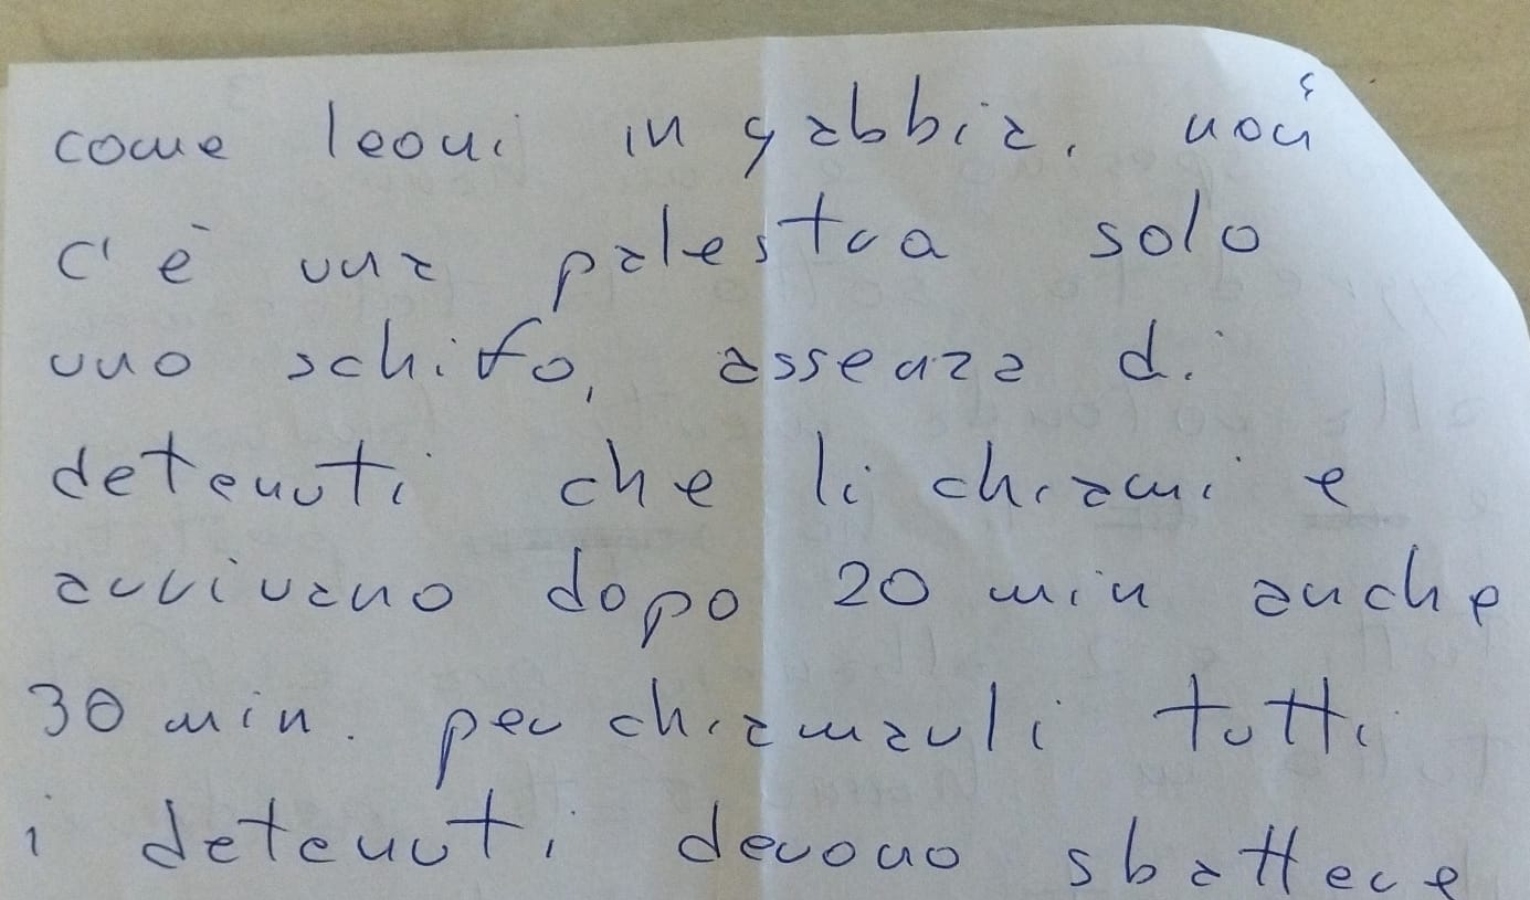 come leoni in gabbia, non
c'è una palestra solo
uno schifo, assenza di
detenuti che li chiami e
arrivano dopo 20 min anche
30 min. per chiamarli tutti
i detenuti devono sbattere